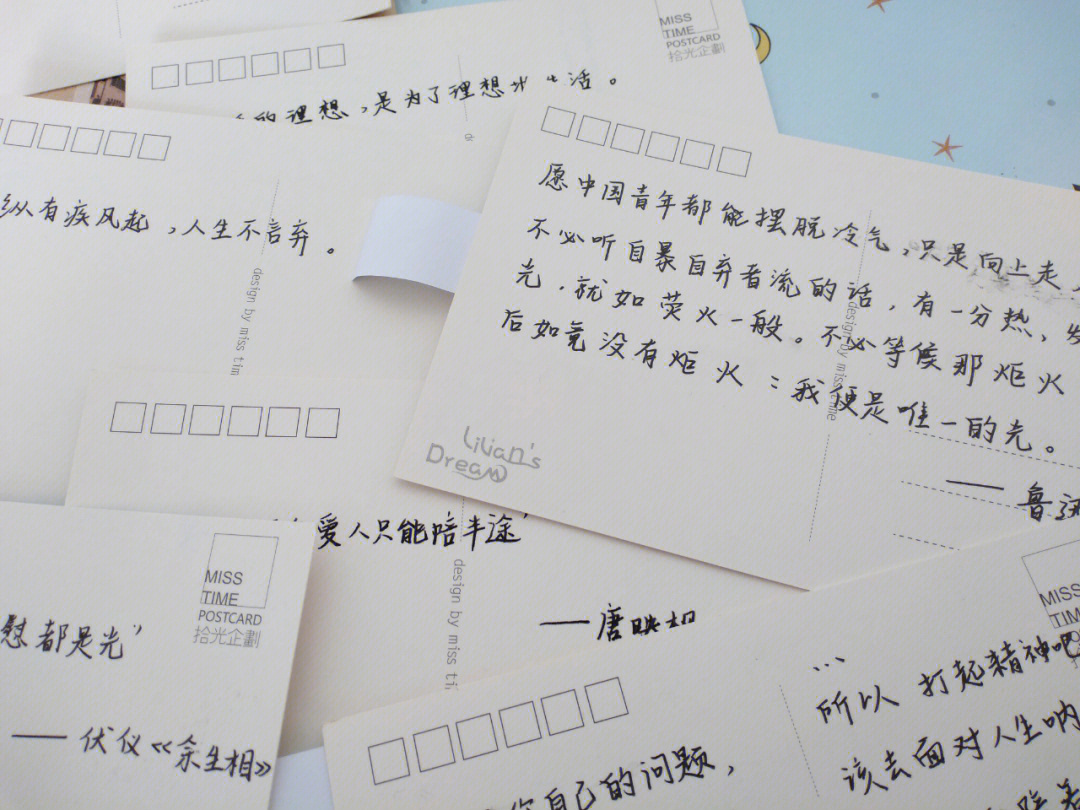 MISS
TIME
POSTCARD
拾光企劃
的理想,是为了理想
活。
纵有疾风起,人生不言弃。
design by miss tim
愿中国青年都能摆脱冷气,只是向上走
不必听自暴自弃者流的话,有一分热,发
光,就如荧火一般。不必等候那炬火
后如竟没有炬火:我便是唯一的光。
——鲁迅
design by miss time
Lilian's
Dream
爱人只能陪半途”
——唐映红
design by miss ti
MISS
TIME
POSTCARD
拾光企劃
慰都是光”
——伏仪《余生相》
自己的问题,
MISS
TIM
...
所以 打起精神吧
该去面对人生呐